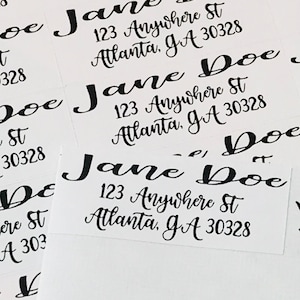 Jane Doe
123 Anywhere St
Atlanta, GA 30328
Doe
St
30328
Jane Doe
123 Anywhere St
Atlanta, GA 30328
Doe
Jane Doe
123 Anywhere St
Atlanta, GA 30328